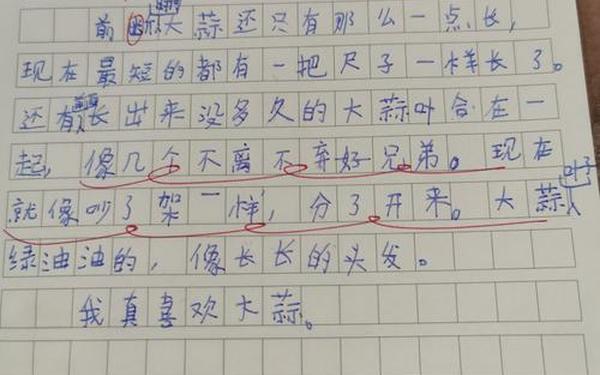 前放大蒜还只有那么一点长,
现在最短的都有一把尺子一样长了。
还有长出来没多久的大蒜叶合在一
起,像几个不离不弃好兄弟。现在
就像吵了架一样,分了开来。大蒜叶子
绿油油的,像长长的头发。
我真喜欢大蒜。